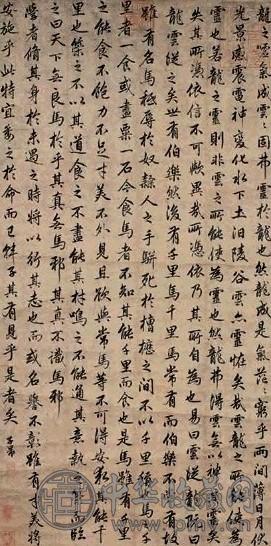 龍嘘氣成雲〻固弗靈於龍也然龍乘是氣茫〻窮乎兩間薄日月伏
光景感震電神變化水下土汨陵谷雲亦靈怪矣哉雲龍之所能使為
靈也若龍之靈則非雲之所能使為靈也然龍弗得雲無以神其靈矣
失其所憑依信不可歟異哉其所憑依乃其所自為也易曰雲從龍既曰
龍雲從之矣世有伯樂然後有千里馬千里馬常有而伯樂不常有故
雖有名馬秪辱於奴隸人之手駢死於槽櫪之間不以千里稱馬之千
里者一食或盡粟一石今食馬者不知其能千里而食也是馬雖有千里
之能食不飽力不足才美不外見且欲與常馬等不可得安求其能千
里也策之不以其道食之不盡其材鳴之不能通其意執策而臨
之曰天下無良馬於乎其真無馬邪其真不識馬邪
學者脩其身於未遇之時將以行其志也而或名譽不彰雖有才美將
安施乎此特宜委之於命而已韓子其有見乎是者矣 子昂
中华收藏网